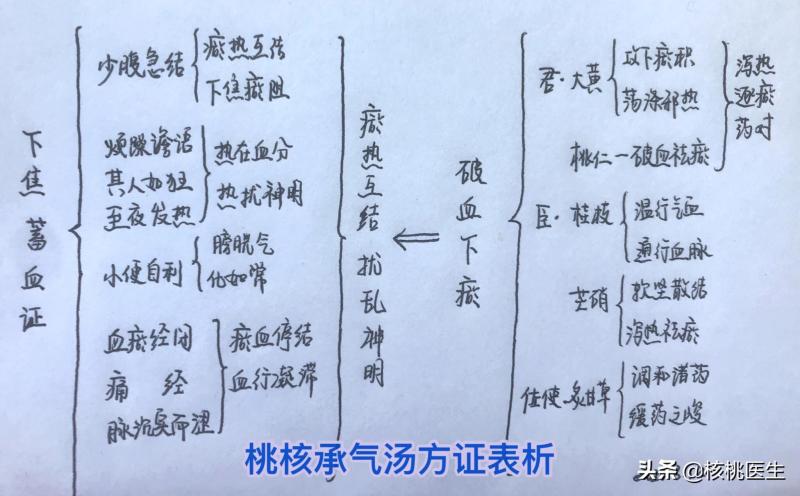 下焦蓄血证
少腹急结
瘀热互结
下焦瘀阻
烦躁谵语
其人如狂
至夜发热
热在血分
热扰神明
小便自利
膀胱气
化如常
血瘀经闭
痛 经
脉沉实而涩
瘀血停结
血行凝滞
瘀热互结 扰乱神明
破血下瘀
君·大黄
攻下瘀积
荡涤邪热
桃仁—破血祛瘀
泻热
逐瘀
药对
臣·桂枝
温行气血
通行血脉
芒硝
软坚散结
泻热祛瘀
佐使·炙甘草
调和诸药
缓药之峻
桃核承气汤方证表析
头条@核桃医生